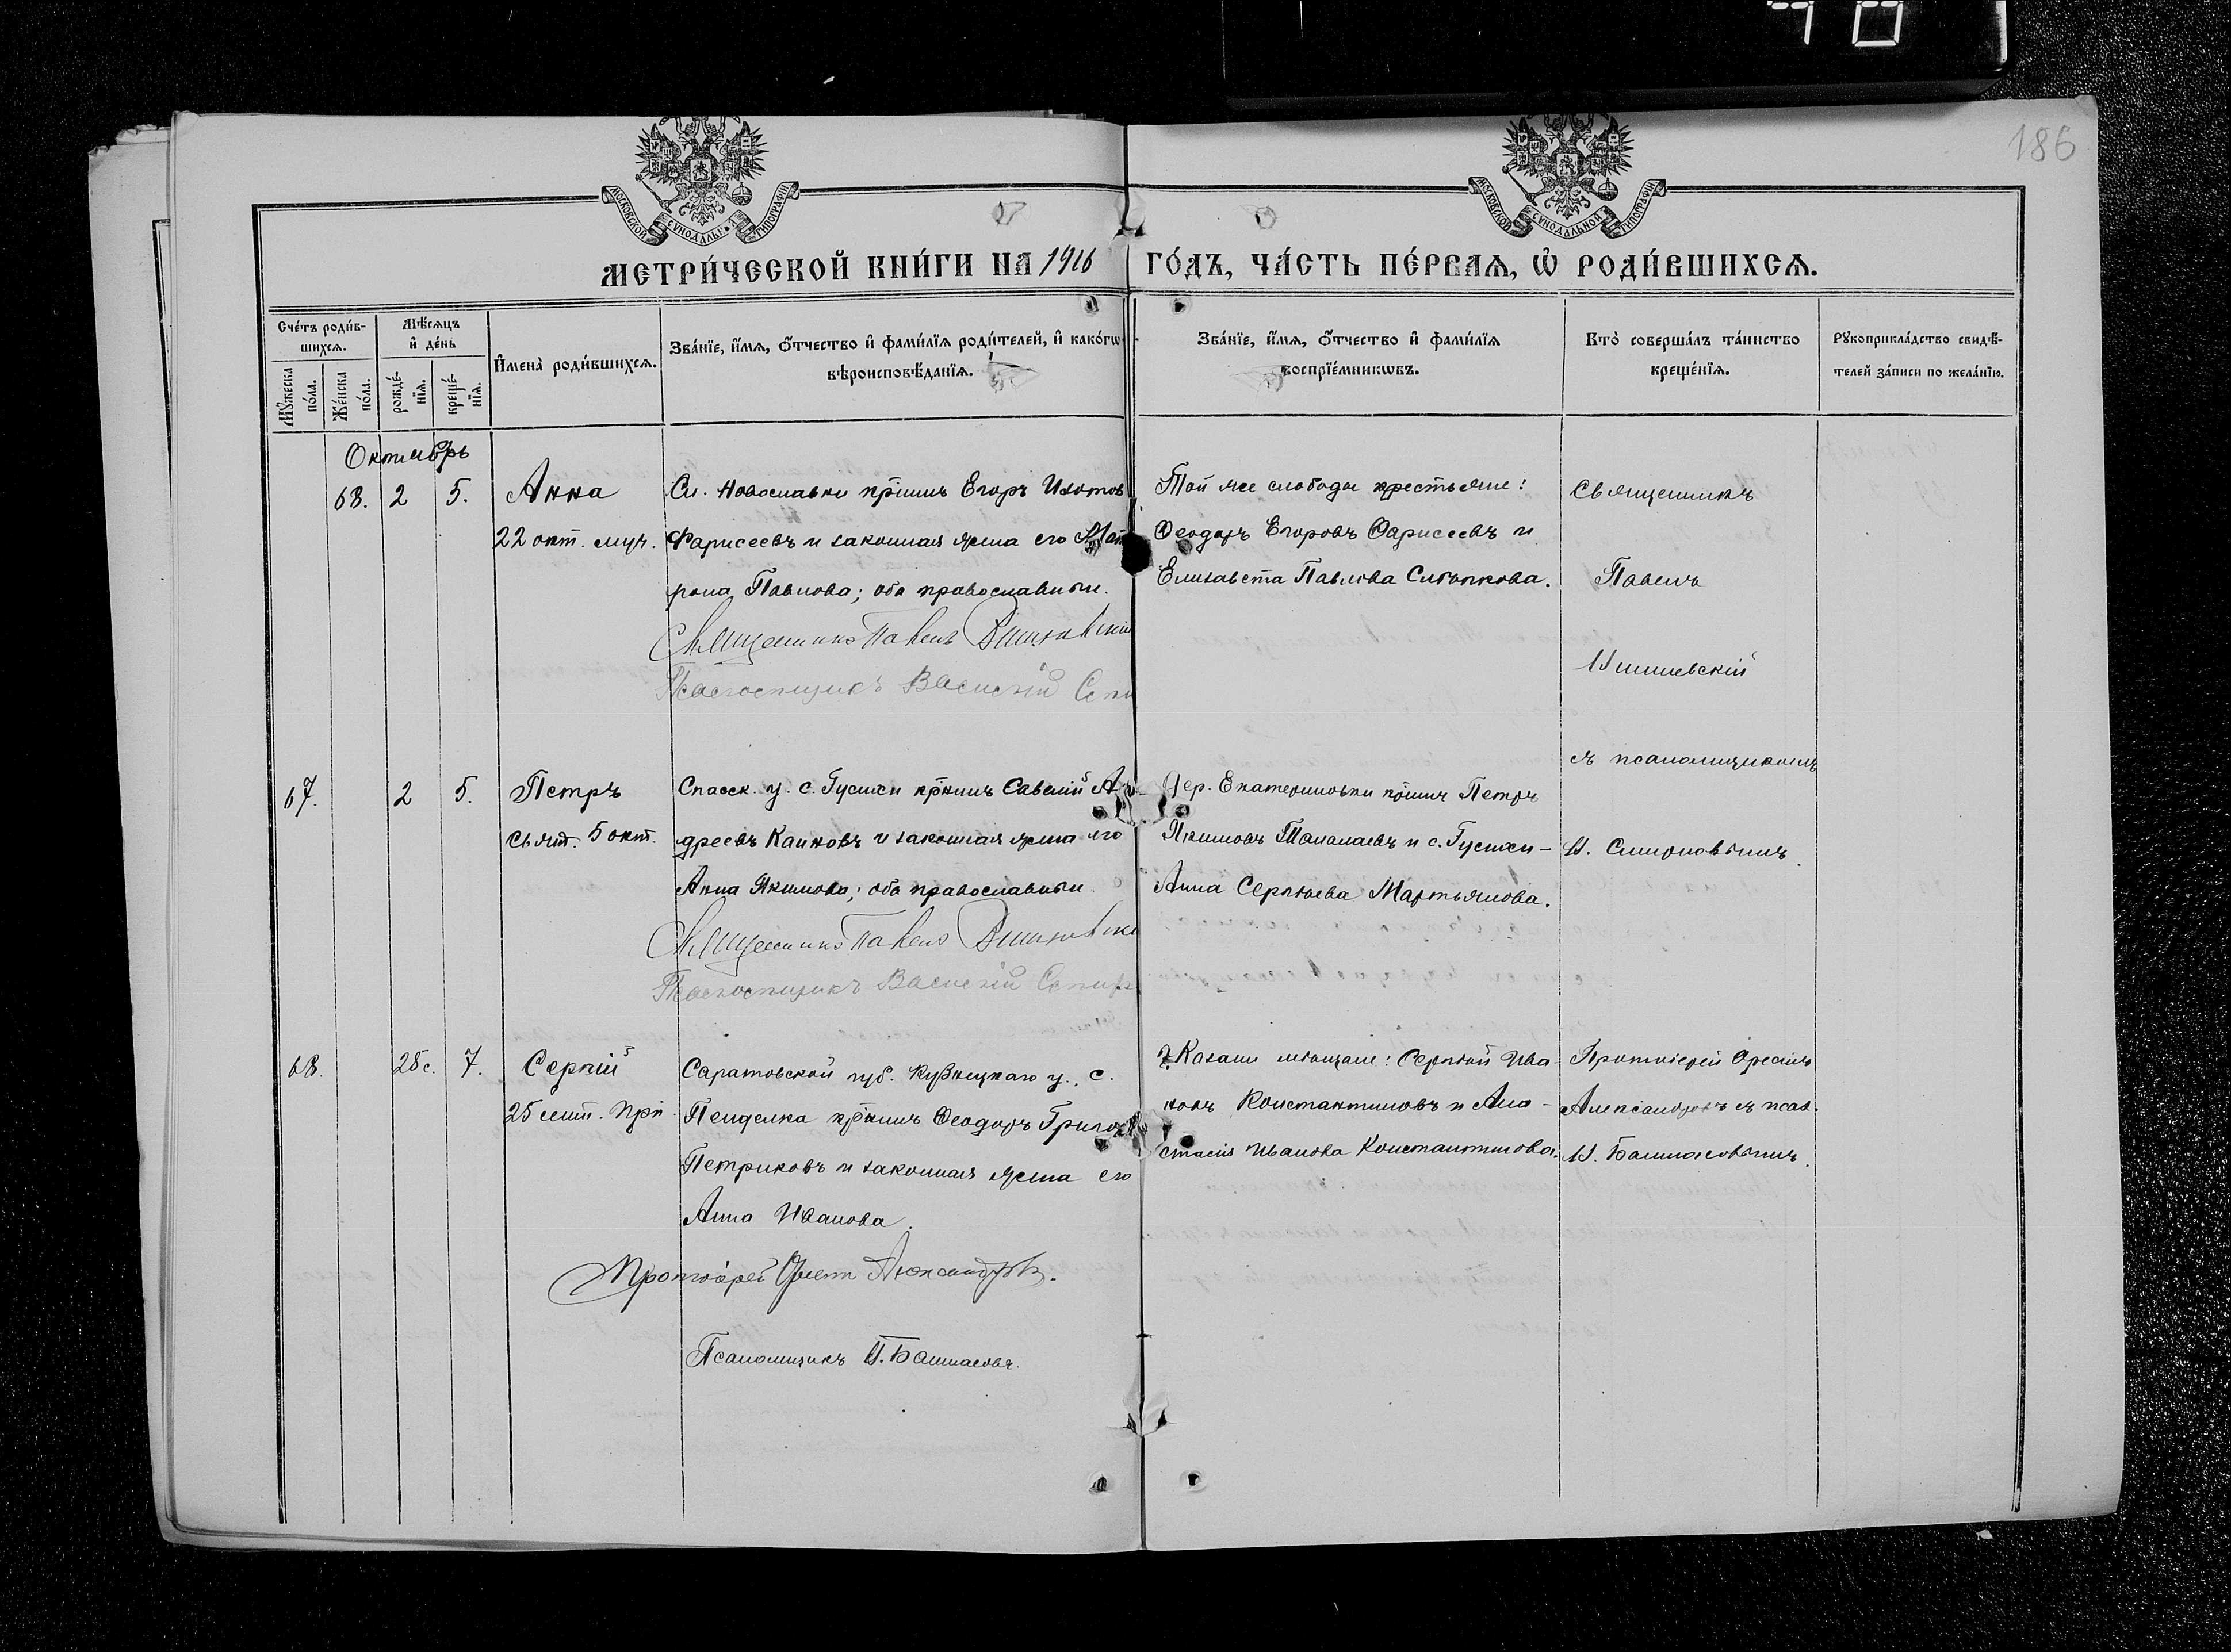 186
МОСКОВСКОЙ СѴНОДАЛЬНОЙ ТИПОГРАФІИ
МОСКОВСКОЙ СѴНОДАЛЬНОЙ ТИПОГРАФІИ
МЕТРИ́ЧЕСКОЙ КНИ́ГИ НА 1916 ГО́ДЪ, ЧА́СТЬ ПЕ́РВАѦ, Ѡ҆ РОДИ́ВШИХСѦ.
Сче́тъ роди́в-
шихсѧ.
Мꙋ́жеска по́ла.
Же́нска по́ла.
Мѣ́сѧцъ
и҆ де́нь
рожде́-
нїѧ.
креще́-
нїѧ.
И҆мена̀ роди́вшихсѧ.
Зва́нїе, и҆́мѧ, ѻ҆́тчество и҆ фами́лїѧ роди́телей, и҆ како́гѡ
вѣроисповѣ́данїѧ.
Зва́нїе, и҆́мѧ, ѻ҆́тчество и҆ фами́лїѧ
воспрїе́мникѡвъ.
Кто̀ соверша́лъ та́инство
креще́нїѧ.
Рꙋкоприкла́дство свидѣ́-
телей за́писи по жела́нїю.
Октябрь
68. 2 5. Анна
22 окт. муч.
Сл. Новославки кр-нинъ Егоръ Изотовъ
Фарисеевъ и законная жена его Мат
рона Павлова; оба православные.
Священникъ Павелъ
Псаломщикъ Василій
Той же слободы крестьяне:
Ѳеодоръ Егоровъ Фарисеевъ и
Елизавета Павлова
Священникъ
Павелъ
съ псаломщикомъ
В. Смирновымъ.
67. 2 5. Петръ
свят. 5 окт.
Спасск. у. с. Гусихи кр-нинъ Савелій Ан-
дреевъ Каиновъ и законная жена его
Анна Якимова; оба православные
Священникъ Павелъ
Псаломщикъ Василій
Дер. Екатериновки кр-нинъ Петръ
Якимовъ Таналаевъ и с. Гусихи –
Анна Сергѣева Мартьянова.
68. 28 с. 7. Сергій
25 сент. прп.
Саратовской губ. Кузнецкаго у., с.
Пенделка кр-нинъ Ѳеодоръ Григор
Петриковъ и законная жена его
Анна Иванова.
Протоіерей Орестъ Александровъ.
Псаломщикъ И. Балмасовъ.
г. Казани мѣщане: Сергѣй Ива-
новъ Константиновъ и Ана-
стасія Иванова Константинова.
Протоіерей Орестъ
Александровъ съ псал.
И. Балмасовымъ.